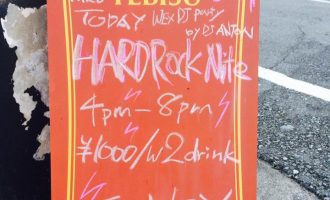 YEBISU
TODAY Wax DJ party
by DJ ANTON
HARDRock Nite
4pm - 8pm
¥1000/w 2 drink